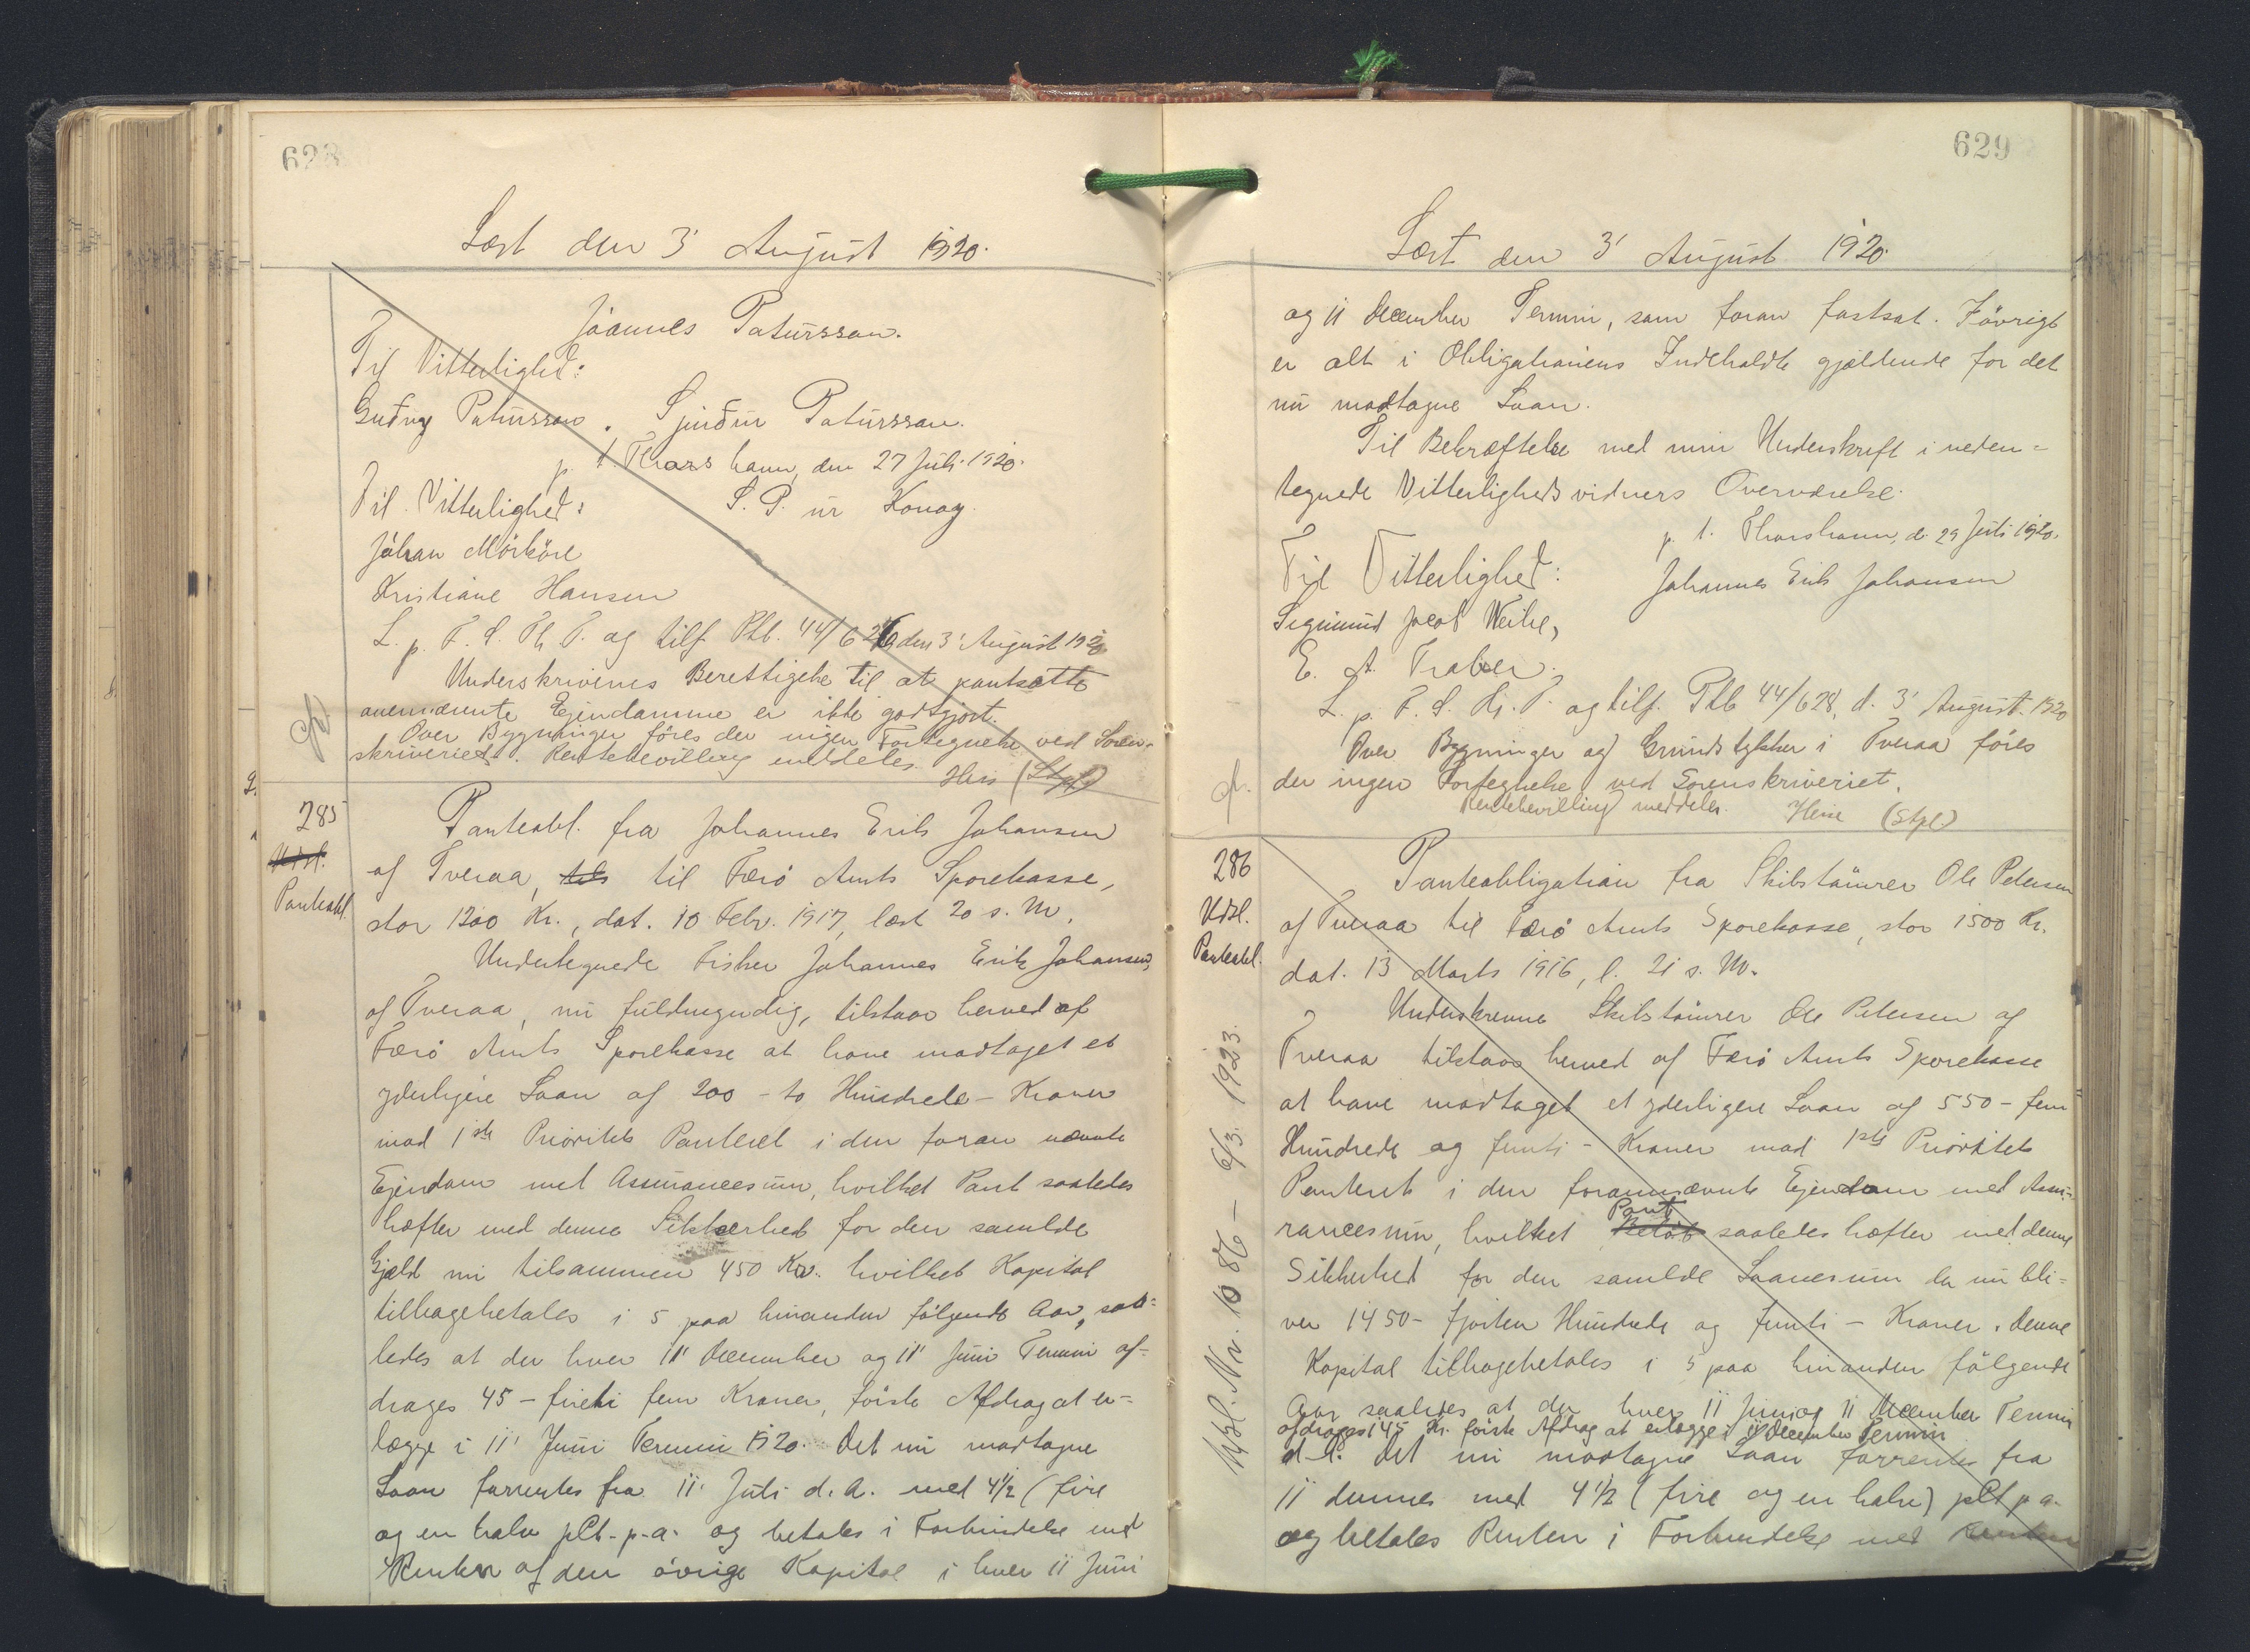 628
Læst den 3' August 1920.
Jóannes Patursson.
Til Vitterlighed:
Guðny Patursson. Sjurður Patursson.
p. t. Thorshavn, den 27 Juli 1920.
Til Vitterlighed: S. P. úr Konoy
Jóhan Mörköre
Kristiane Hansen
L. p. F. S. Th. T. og tilf. Ptb. 44/626 den 3' August 1920
Underskrivenes Berettigelse til at pantsætte
ovennævnte Ejendomme er ikke godtgjort.
Over Bygninger föres der ingen Fortegnelse ved Soren-
skriveriet. Rentebevilling meddeles.
(Stpl)
285
Udsl.
Panteobl.
Panteobl. fra Johannes Erik Johansen
af Tveraa, til Færö Amts Sparekasse,
stor 1200 Kr., dat. 10 Febr. 1917, læst 20 s. M.
Undertegnede Fisker Johannes Erik Johansen,
af Tveraa, nu fuldmyndig, tilstaar herved af
Færö Amts Sparekasse at have modtaget et
yderligere Laan af 200 - to Hundrede - Kroner
mod 1ste Prioritets Panteret i den foran nævnte
Ejendom med Assurancesum, hvilket Pant saaledes
hæfter med denne Sikkerhed for den samlde
Gjæld nu tilsammen 450 Kr. hvilket Kapital
tilbagebetales i 5 paa hinanden fölgende Aar, saa-
ledes at der hver 11' December og 11' Juni Termin af-
drages 45 - fireti fem Kroner, förste Afdrag at er-
lægge i 11' Juni Termin 1920. Det nu modtagne
Laan forrentes fra 11' Juli d. A. med 4½ (fire
og en halv pCt. p. a. og betales i Forbindelse med
Renten af den övrige Kapital i hver 11 Juni
629
Læst den 3' August 1920.
og 11 December Termin, som foran fastsat. Jövrigt
er alt i Obligationens Indeholdte gjældende for det
nu modtagne Laan.
Til Bekræftelse med min Underskrift i neden-
tegnede Vitterligheds vidners Overværelse.
p. t. Thorshavn, d. 29 Juli 1920.
Til Vitterlighed: Johannes Erik Johansen
Sigmund Jacob Weihe,
E. A.
L. p. F. S. Hj. T. og tilf. Ptb 44/628, d. 3' August. 1920
Over Bygninger og Grundstykker i Tveraa föres
der ingen Fortegnelse ved Sorenskriveriet.
Rentebevilling meddeles. (Stpl.)
286
Udsl.
Panteobl.
Panteobligation fra Skibstömrer Ole Petersen
af Tveraa til Færö Amts Sparekasse, stor 1500 Kr.
dat. 13 Marts 1916, l. 21 s. M.
Underskrevne Skibstömrer Ole Petersen af
Tveraa tilstaar herved af Færö Amts Sparekasse
at have modtaget et yderligere Laan af 550 - fem
Hundrede og femti - Kroner mod 1ste Prioritets
Panteret i den forannævnte Ejendom med Assu-
rancesum, hvilket Beløb Pant saaledes hæfter med denne
Sikkerhed for den samlde Laanesum der nu bli-
ver 1450 - fjorten Hundrede og femti - Kroner. denne
Kapital tilbagebetales i 5 paa hinanden fölgende
Aar saaledes at der hver 11 Juni og 11 December Termin
afdrages 145 Kr. förste Afdrag at erlægge i 11 December Termin
d. A. Det nu modtagne Laan forrentes fra
11 dennes med 4½ (fire og en halv) pCt p a.
og betales Renten i Forbindelse med Renten
Udsl. Nr. 1086 - 6/3. 1923.